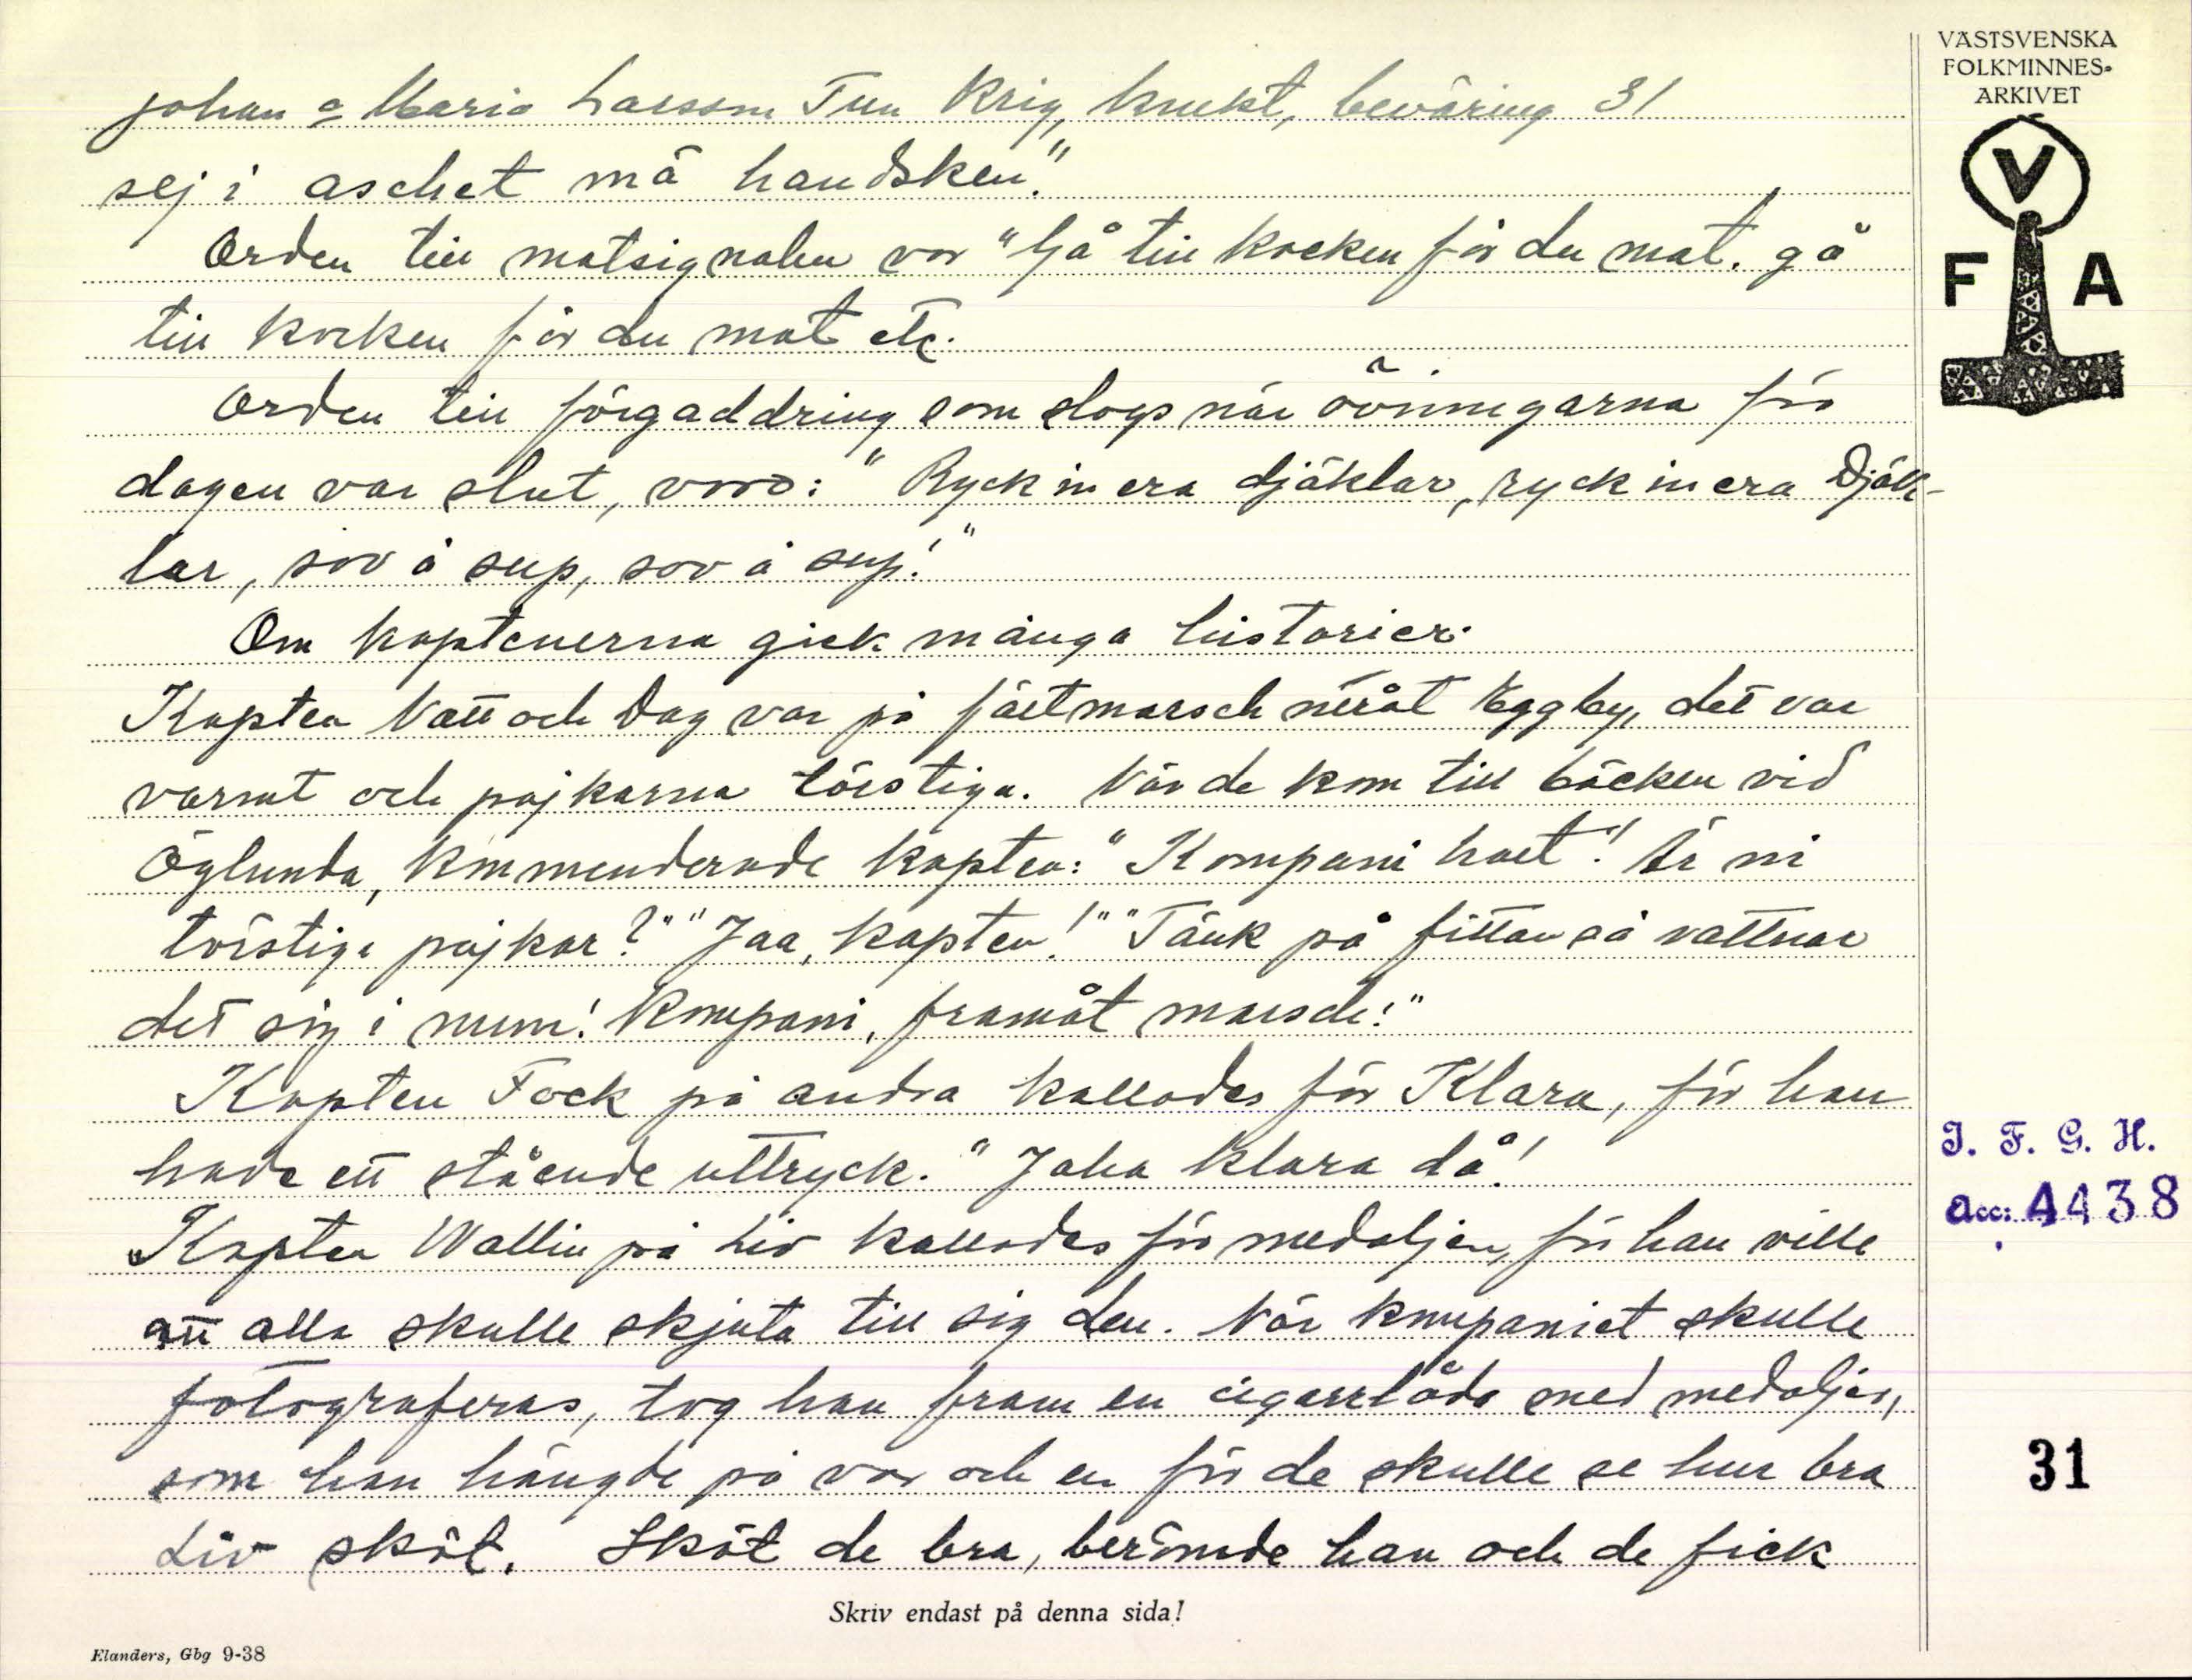 VÄSTSVENSKA
FOLKMINNES-
ARKIVET
V
F A
Johan o Maria Larsson Tun Krig, knekt, beväring 31
sej i aschet mä handsken."
Orden till matsignalen var "Gå till kocken får du mat. gå
till kocken får du mat etc.
Orden till förgaddring som slogs när övningarna för
dagen var slut, voro: "Ryck in era djäklar, ryck in era Djäk-
lar, sov å sup, sov å sup!"
Om kaptenerna gick många historier.
Kapten Natt och Dag var på fältmarsch neråt Eggby, det var
varmt och pojkarna törstiga. När de kom till bäcken vid
Öglunda, kommenderade kapten: "Kompani halt! Är ni
törstiga pojkar?" "Jaa, kapten!" "Tänk på fittan så vattnar
det sig i mun! Kompani, framåt marsch!"
Kapten Fock på andra kallades för Klara, för han
hade ett stående uttryck. "Jaha klara då!
Kapten Wallin på Liv kallades för medaljen, för han ville
att alla skulle skjuta till sig den. När kompaniet skulle
fotograferas, tog han fram en cigarrlåda med medaljer,
som han hängde på var och en för de skulle se hur bra
Liv sköt. Sköt de bra, berömde han och de fick
I. F. G. H.
Acc: 4438
31
Skriv endast på denna sida!
Elanders, Gbg 9-38